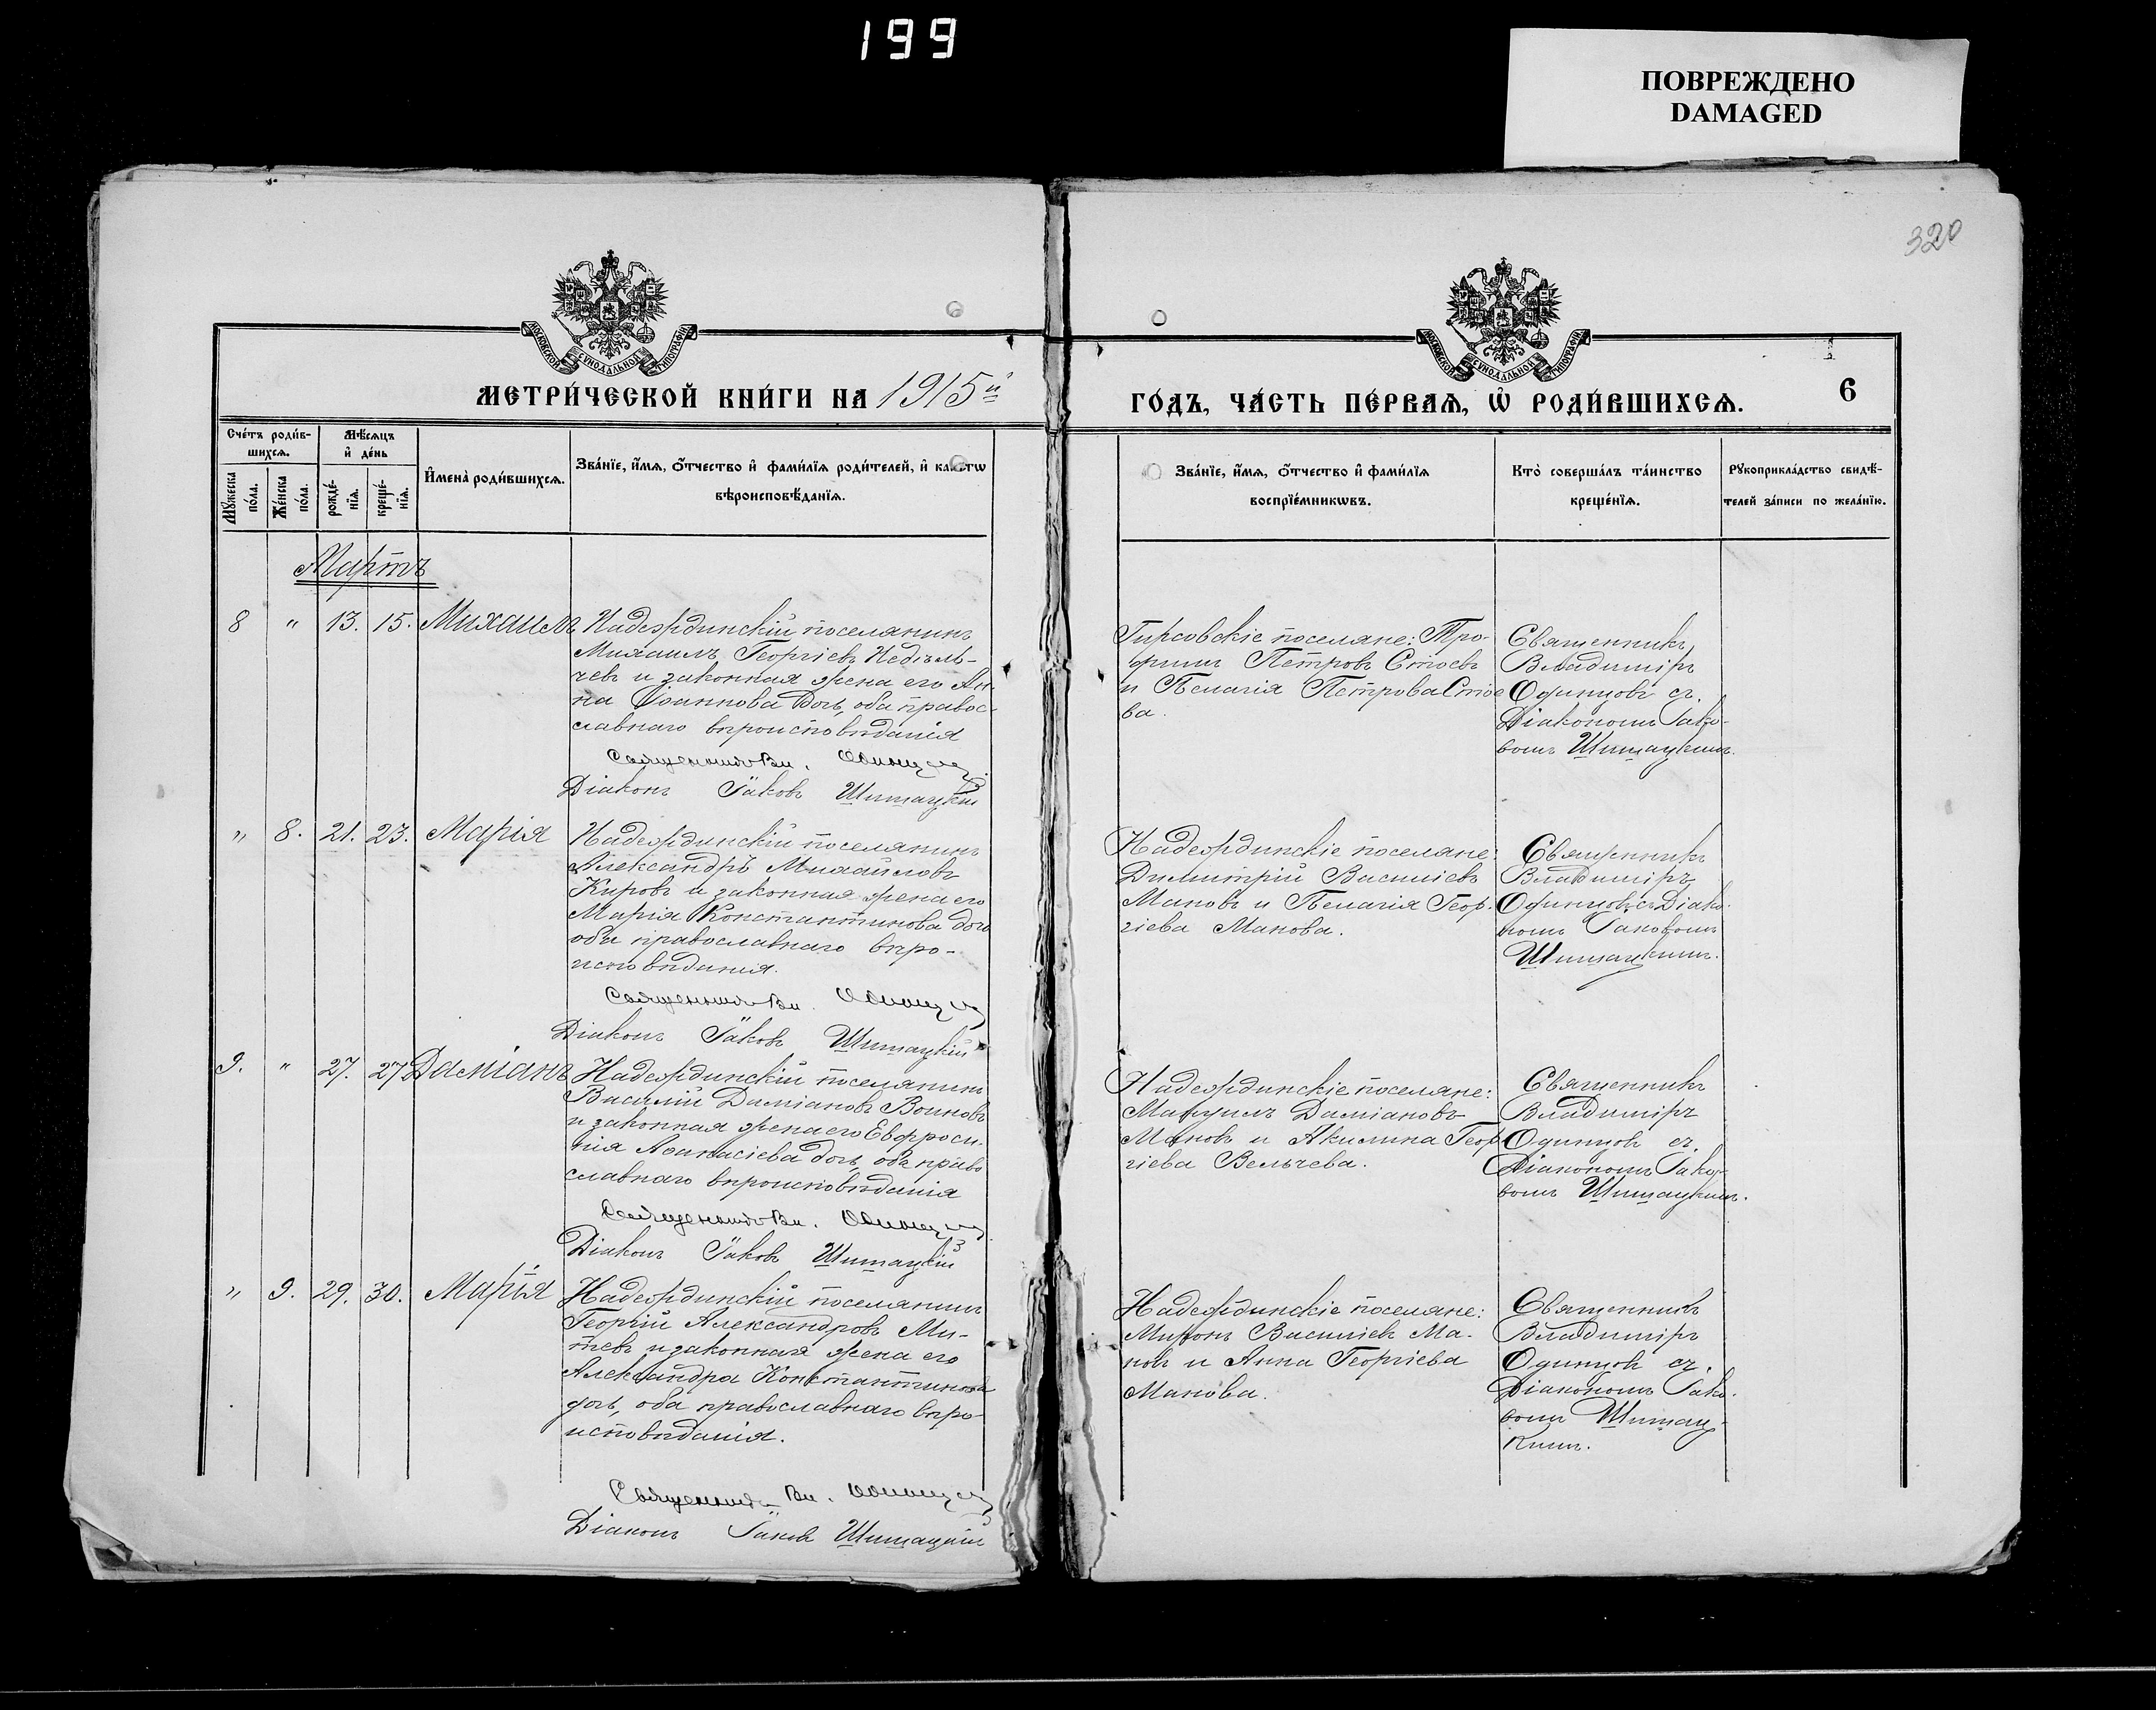 199
ПОВРЕЖДЕНО
DAMAGED
320
МОСКОВСКОЙ СѴНОДАЛЬНОЙ ТИПОГРАФІИ
МОСКОВСКОЙ СѴНОДАЛЬНОЙ ТИПОГРАФІИ
МЕТРИ́ЧЕСКОЙ КНИ́ГИ НА 1915й
ГО́ДЪ, ЧА́СТЬ ПЕ́РВАѦ, Ѡ҆ РОДИ́ВШИХСѦ.
6
Сче́тъ роди́в-
шихсѧ.
Мѣ́сѧцъ
и҆ де́нь
Мꙋ́жеска по́ла.
Же́нска по́ла.
рожде́-
нїѧ.
креще́-
нїѧ.
И҆мена̀ роди́вшихсѧ.
Зва́нїе, и҆́мѧ, ѻ҆́тчество и҆ фами́лїѧ роди́телей, и҆ како́гѡ
вѣроисповѣ́данїѧ.
Зва́нїе, и҆́мѧ, ѻ҆́тчество и҆ фами́лїѧ
воспрїе́мникѡвъ.
Кто̀ соверша́лъ та́инство
креще́нїѧ.
Рꙋкоприкла́дство свидѣ́-
телей за́писи по жела́нїю.
Мартъ
8 " 13. 15. Михаилъ
Надеждинскій поселянинъ
Михаилъ Георгіевъ Недѣль-
чевъ и законная жена его Ан-
на Іоаннова дочь, оба правос-
славнаго вѣроисповѣданія
Священникъ Вл. Одинцовъ
Діаконъ Іаковъ Шишацкій
Гирсовскіе поселяне: Тро-
фимъ Петровъ Стоевъ
и Пелагія Петрова Стое
ва.
Священникъ
Владиміръ
Одинцовъ съ
Діакономъ Іако-
вомъ Шишацкимъ.
" 8. 21. 23. Марія
Надеждинскій поселянинъ
Александръ Михайловъ
Кировъ и законная жена его
Марія Константинова дочь
оба православнаго вѣро-
исповѣданія.
Священникъ Вл. Одинцовъ
Діаконъ Іаковъ Шишацкій
Надеждинскіе поселяне:
Димитрій Василіевъ
Мановъ и Пелагія Геор-
гіева Манова.
Священникъ
Владиміръ
Одинцовъ съ Діако-
номъ Іаковомъ
Шишацкимъ.
9. " 27. 27 Даміанъ
Надеждинскій поселянинъ
Василій Даміановъ Войновъ
и законная жена его Евфроси-
нія Аѳанасіева дочь, оба право
славнаго вѣроисповѣданія
Священникъ Вл. Одинцовъ
Діаконъ Іаковъ Шишацкій
Надеждинскіе поселяне:
Мануилъ Даміановъ
Мановъ и Акилина Геор
гіева Вельчева.
Священникъ
Владиміръ
Одинцовъ съ
Діакономъ Іако-
вомъ Шишацкимъ.
" 9. 29. 30. Марія
Надеждинскій поселянинъ
Георгій Александровъ Ми-
тевъ и законная жена его
Александра Константинова
дочь, оба православнаго вѣро-
исповѣданія.
Священникъ Вл. Одинцовъ
Діаконъ Іаковъ Шишацкій
Надеждинскіе поселяне:
Миронъ Василіевъ Ма-
новъ и Анна Георгіева
Манова.
Священникъ
Владиміръ
Одинцовъ съ
Діакономъ Іако-
вомъ Шишац-
кимъ.